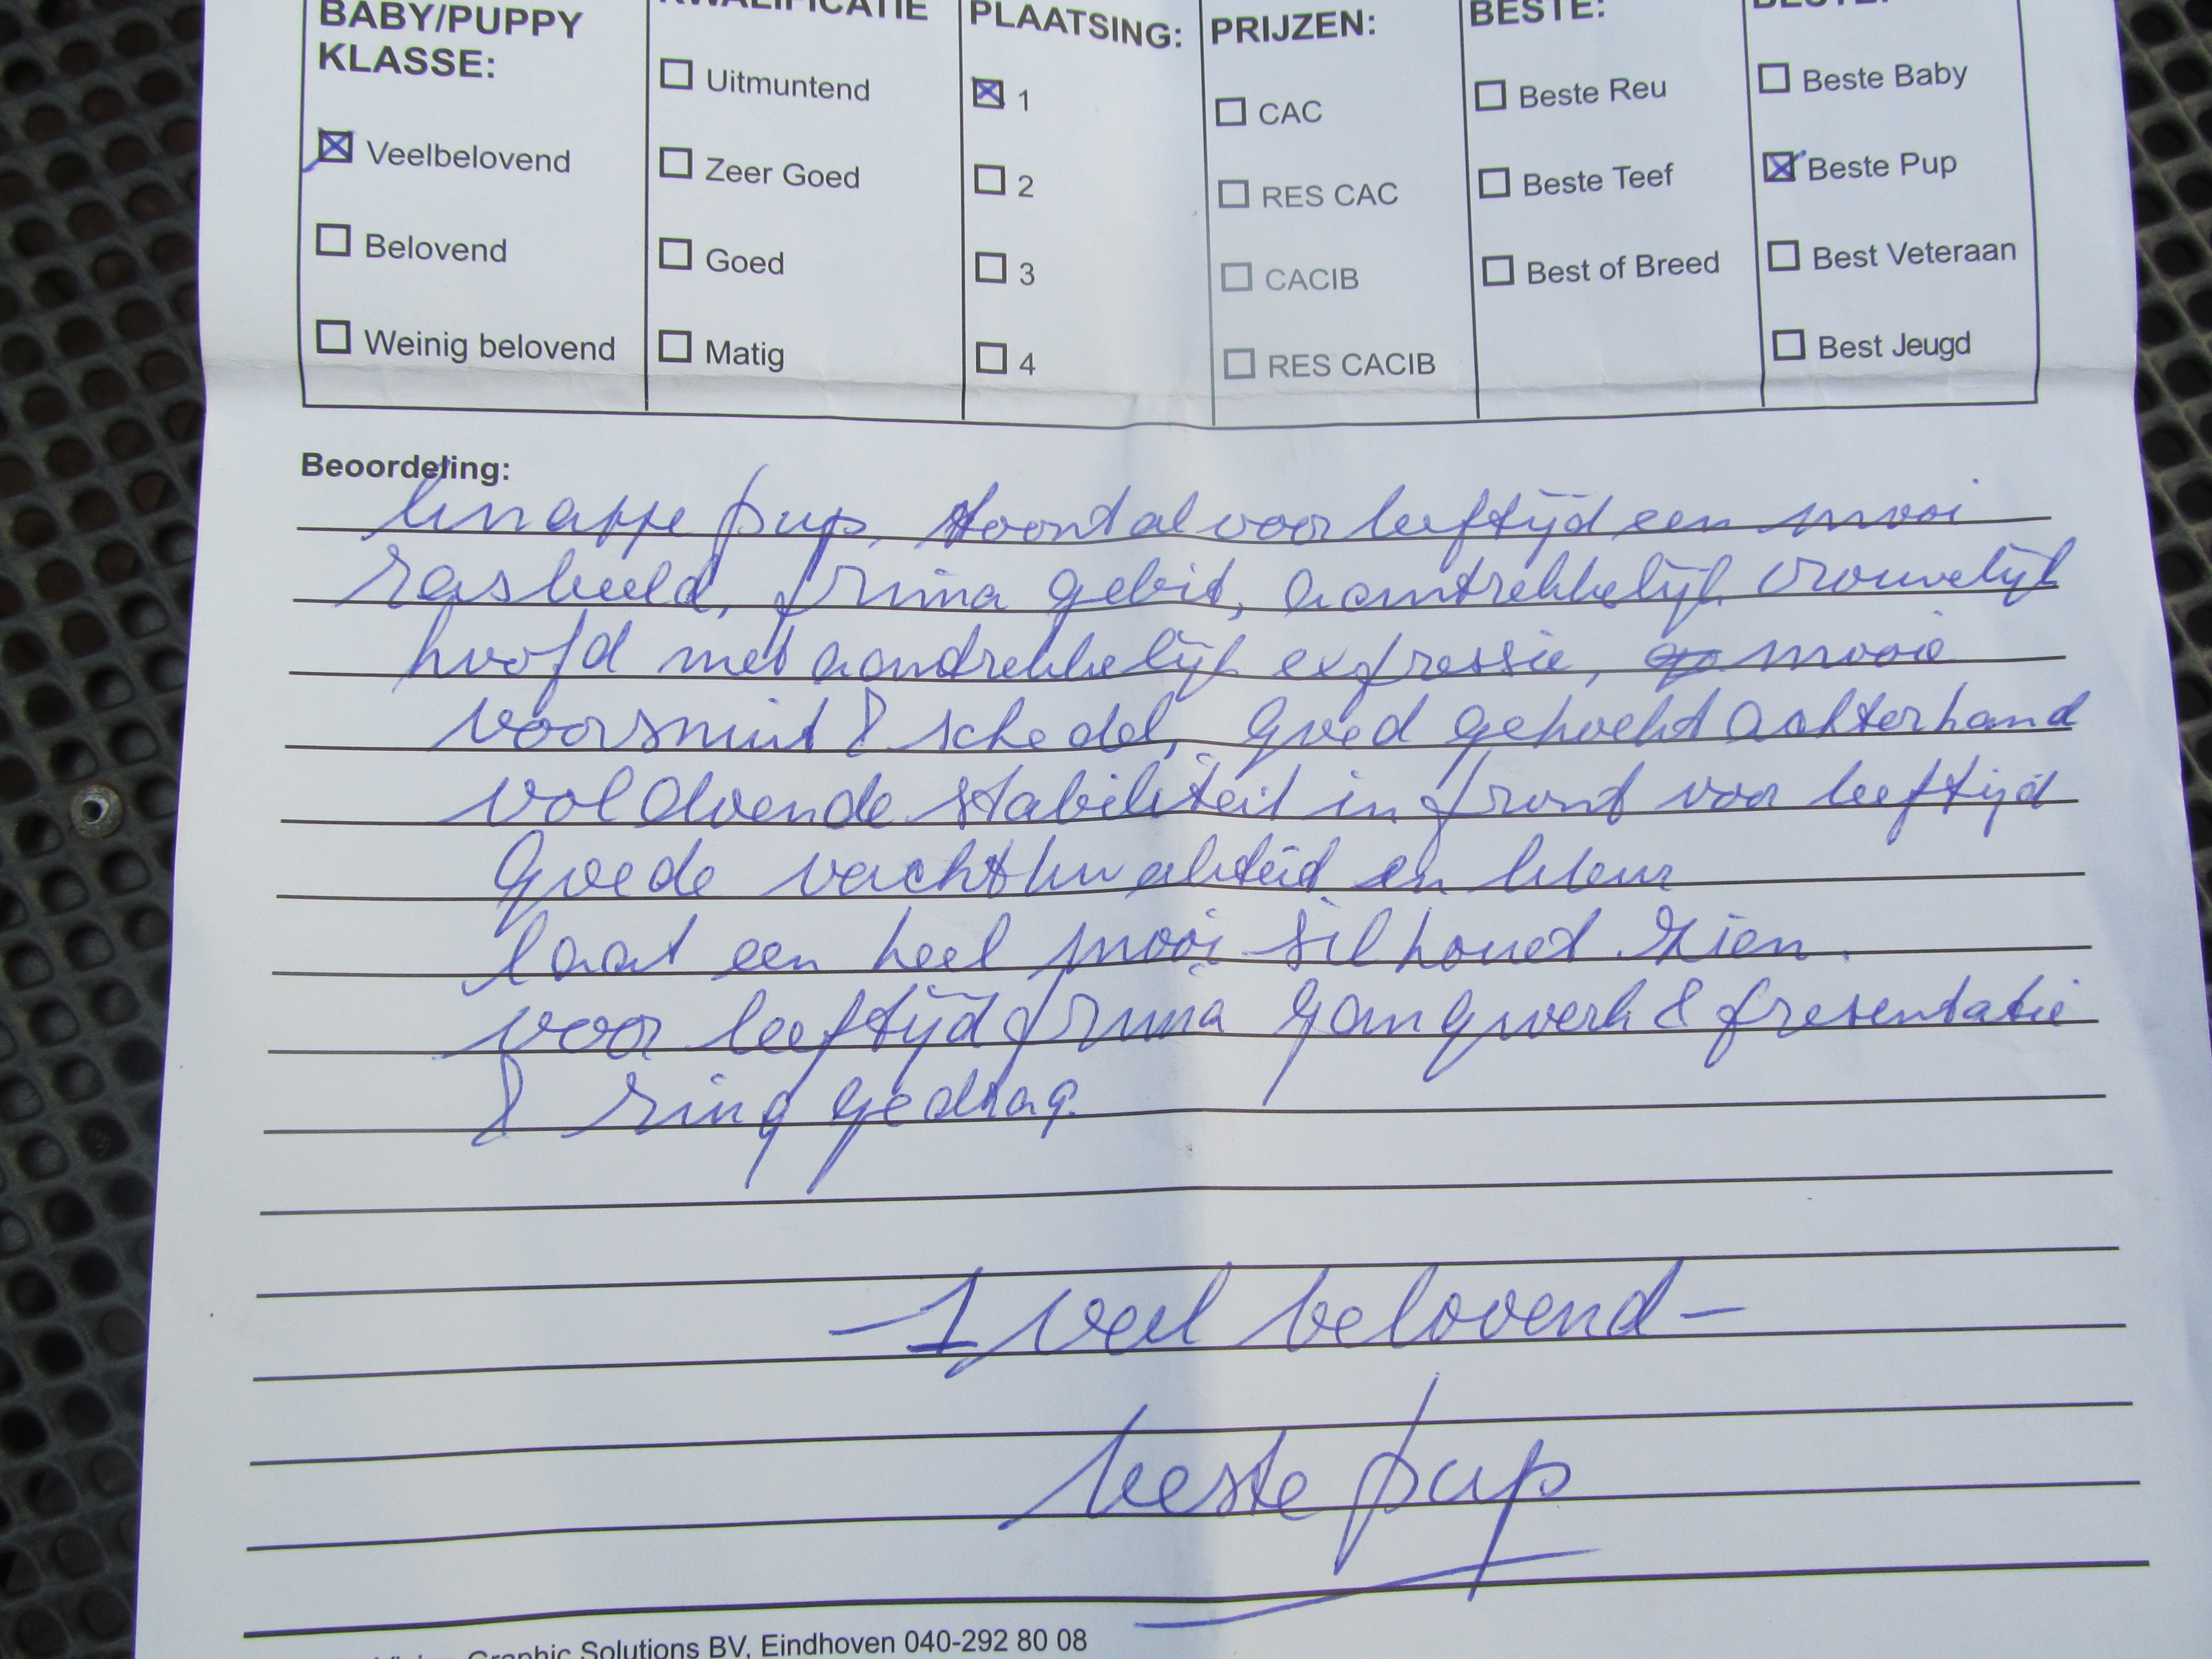 BABY/PUPPY KLASSE:
Veelbelovend
Belovend
Weinig belovend
KWALIFICATIE
Uitmuntend
Zeer Goed
Goed
Matig
PLAATSING:
1
2
3
4
PRIJZEN:
CAC
RES CAC
CACIB
RES CACIB
BESTE:
Beste Reu
Beste Teef
Best of Breed
BESTE:
Beste Baby
Beste Pup
Best Veteraan
Best Jeugd
Beoordeling:
knappe pup, toont al voor leeftijd een mooi
rasbeeld, prima gebit, aantrekkelijk vrouwelijk
hoofd met aantrekkelijk expressie, mooie
voorsnuit & schedel, goed gehoekt achterhand
voldoende stabiliteit in front voor leeftijd
Goede vachtkwaliteit en kleur
laat een heel mooi silhouet zien.
voor leeftijd prima gangwerk & presentatie
& ring gedrag.
- 1 veel belovend -
beste pup
Graphic Solutions BV, Eindhoven 040-292 80 08